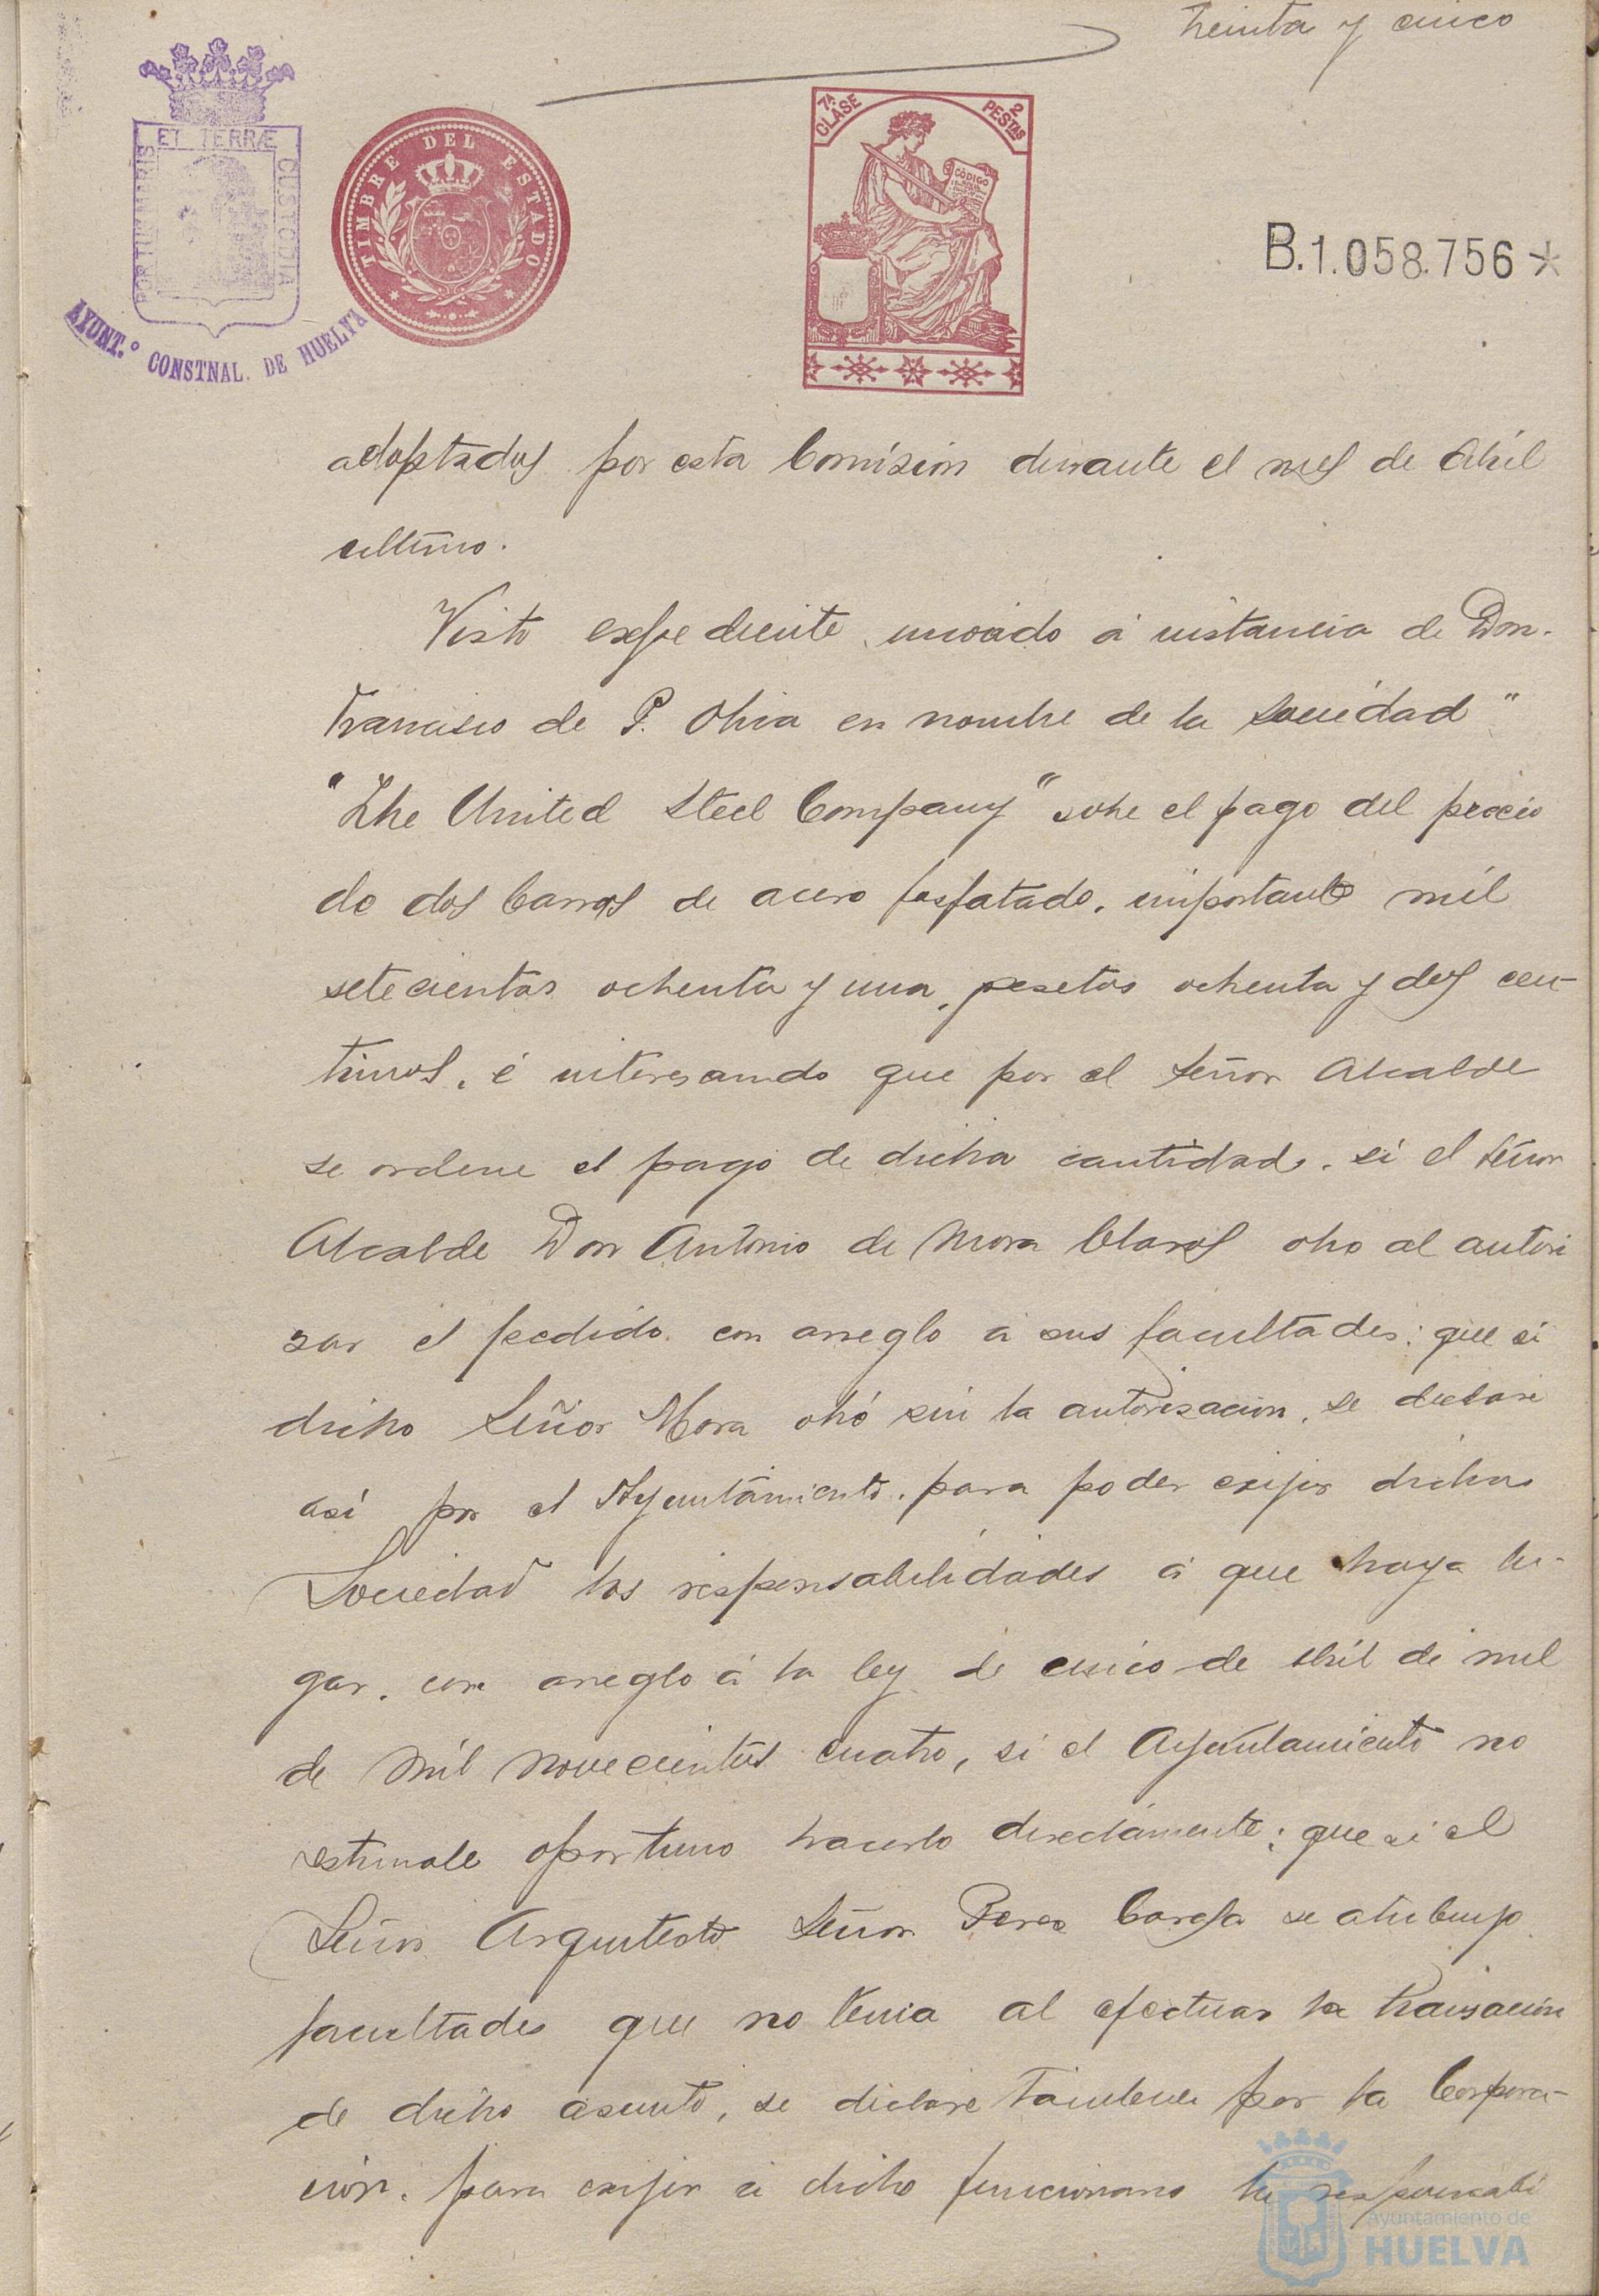 treinta y cinco
ET TERRÆ
PORTUM MARIS
CUSTODIA
AYUNT.º CONSTNAL. DE HUELVA
TIMBRE DEL ESTADO
7ª CLASE
2 PESTAS
CÓDIGO
B.1.058.756*
adoptados por esta Comisión durante el mes de Abril
ultimo.
Visto expediente incoado á instancia de Don.
Francisco de P. Oliva en nombre de la Sociedad "
"The United Steel Company" sobre el pago del precio
de dos barras de acero fosfatado, importante mil
setecientas ochenta y una pesetas ochenta y dos cen-
timos, é interesando que por el Señor Alcalde
se ordene el pago de dicha cantidad, si el Señor
Alcalde Don Antonio de Mora Claros obro al autori
zar el pedido con arreglo á sus facultades: que si
dicho Señor Mora obró sin la autorizacion, se declare
así por el Ayuntamiento, para poder exijir dicha
Sociedad las responsabilidades á que haya lu-
gar, con arreglo á la ley de cinco de Abril de mil
de mil novecientos cuatro, si el Ayuntamiento no
estimale oportuno hacerlo directamente; que si el
Señor Arquitecto Señor Perez Carasa se atribuyo
facultades que no tenia al efectuar la transacion
de dicho asunto, se declare tambien por la Corpora-
ción, para exijir á dicho funcionario la responsabi
Ayuntamiento de
HUELVA